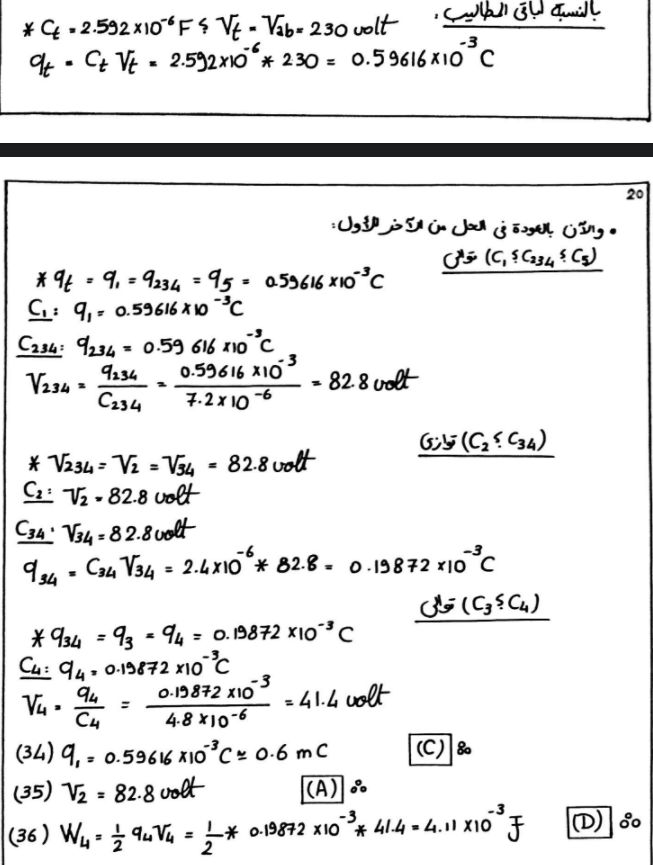 بالنسبة لباقي المطاليب :
* Ct = 2.592x10^-6 F ؟ Vt = Vab = 230 volt
qt = Ct Vt = 2.592x10^-6 * 230 = 0.59616 x10^-3 C
20
• والآن بالعودة في الحل من الآخر للأول:
(C1 ؟ C234 ؟ C5) توالى
* qt = q1 = q234 = q5 = 0.59616 x10^-3 C
C1: q1 = 0.59616 x 10^-3 C
C234: q234 = 0.59 616 x10^-3 C
V234 = q234 / C234 = 0.59616 x10^-3 / 7.2 x 10^-6 = 82.8 volt
(C2 ؟ C34) توازى
* V234 = V2 = V34 = 82.8 volt
C2: V2 = 82.8 volt
C34: V34 = 82.8 volt
q34 = C34 V34 = 2.4x10^-6 * 82.8 = 0.19872 x10^-3 C
(C3 ؟ C4) توالى
* q34 = q3 = q4 = 0.19872 x10^-3 C
C4: q4 = 0.19872 x10^-3 C
V4 = q4 / C4 = 0.19872 x10^-3 / 4.8 x10^-6 = 41.4 volt
(34) q1 = 0.59616 x10^-3 C ≃ 0.6 mC (C)
(35) V2 = 82.8 volt (A)
(36) W4 = 1/2 q4 V4 = 1/2 * 0.19872 x10^-3 * 41.4 = 4.11 x10^-3 J (D)